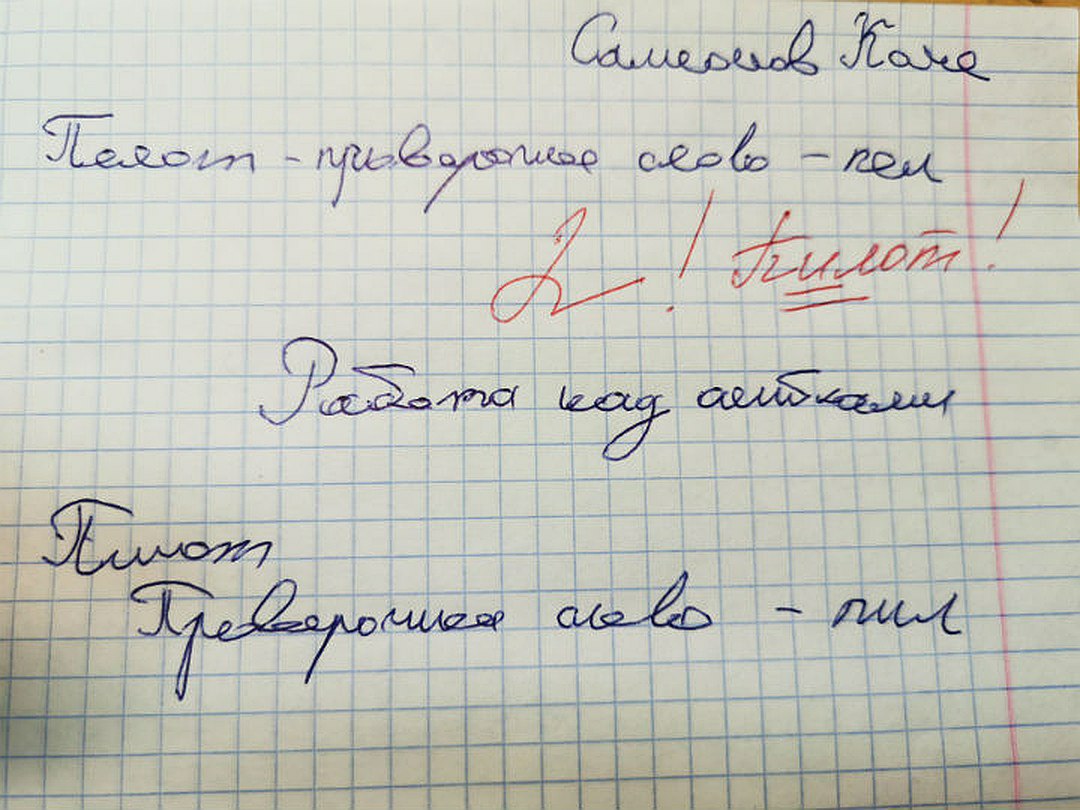 Самсонов Коле
Пелот - проверочное слово - пел
2! Пилот!
Работа над ошибками
Пилот
Проверочное слово - пил